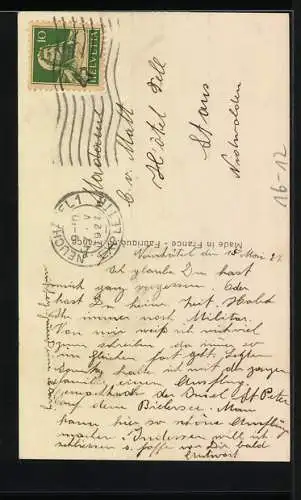 10
HELVETIA
NEUCHATEL 1
Madame
C. v. Matt
Hôtel Tell
Stans
Nidwalden
16-12
Made in France - Fabriqué en France
Neuchâtel den 18. Mai 27.
Ich glaube Du hast
mich ganz vergessen. Oder
hast Du keine Zeit.
Ihr immer noch Militär.
Von mir weiß ich nicht viel
zum schreiben, da immer so
im gleichen fort geht. Letzten
Sonntag habe ich mit der ganzen
Familie einen Ausflug
gemacht nach der Insel St Peter
auf dem Bielersee. Man
kann hier so schöne Ausflüge
machen. Indessen will ich
schliessen u. hoffe von Dir bald
Antwort